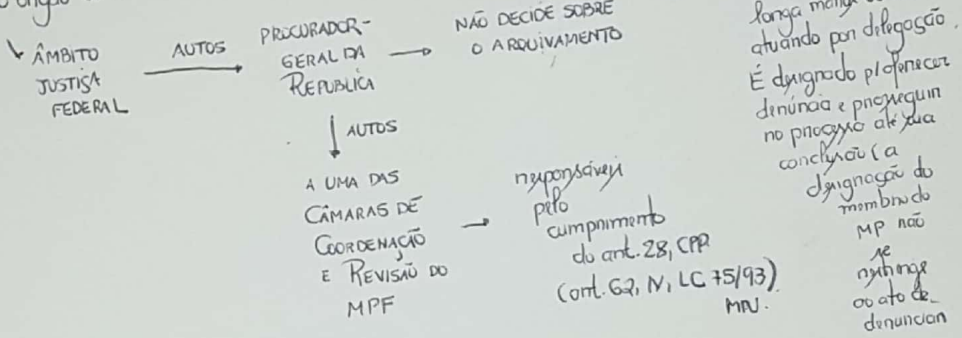 ÂMBITO
JUSTIÇA
FEDERAL
AUTOS
PROCURADOR-
GERAL DA
REPUBLICA
NÃO DECIDE SOBRE
O ARQUIVAMENTO
AUTOS
A UMA DAS
CÂMARAS DE
COORDENAÇÃO
E REVISÃO DO
MPF
responsáveis
pelo
cumprimento
do art. 28, CPP.
(art. 62, IV, LC 75/93)
MPU.
longa
atuando por delegação.
É designado p/ oferecer
denúncia e prosseguir
no processo até sua
conclusão (a
designação do
membro do
MP não
se
restringe
ao ato de
denunciar